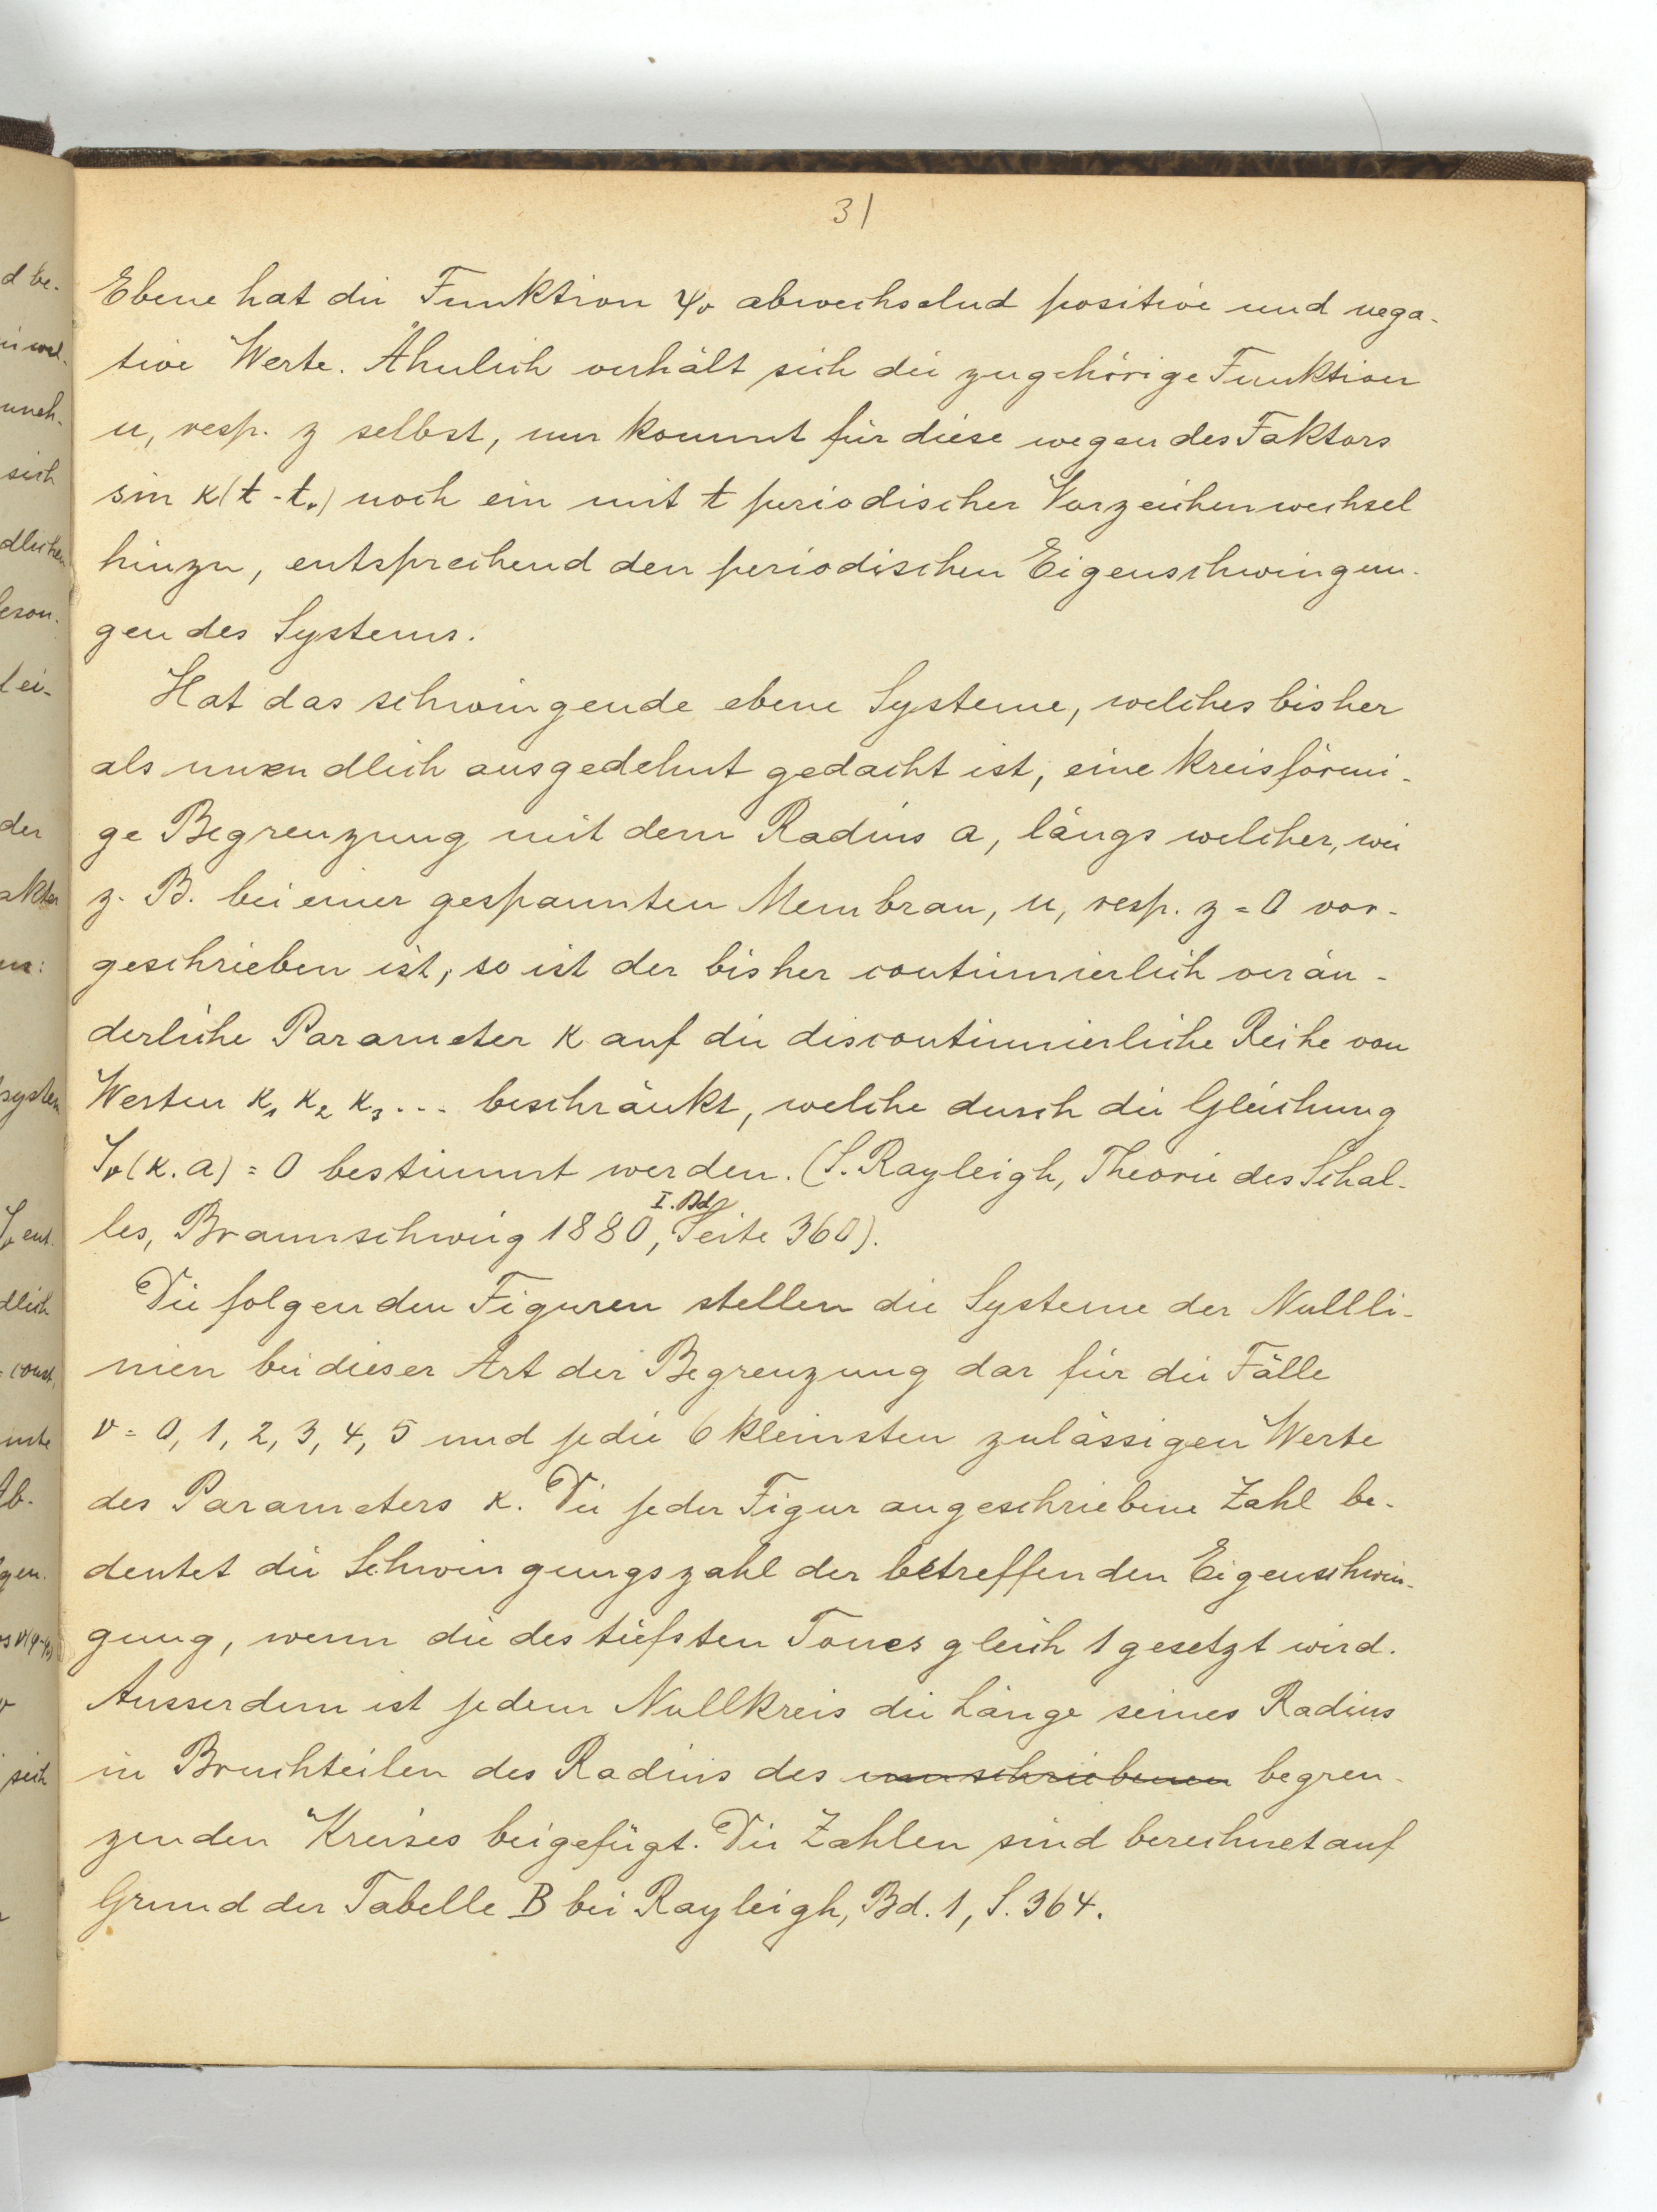 31
Ebene hat die Funktion ψ₀ abwechselnd positive und nega-
tive Werte. Ähnlich verhält sich die zugehörige Funktion
u, resp. z selbst, nur kommt für diese wegen des Faktors
sin κ(t-t₀) noch ein mit t periodischer Vorzeichenwechsel
hinzu, entsprechend den periodischen Eigenschwingun-
gen des Systems.
Hat das schwingende ebene Systeme, welches bisher
als unendlich ausgedehnt gedacht ist, eine kreisförmi-
ge Begrenzung mit dem Radius a, längs welcher, wie
z. B. bei einer gespannten Membran, u, resp. z = 0 vor-
geschrieben ist, so ist der bisher continuierlich verän-
derliche Parameter κ auf die discontinuierliche Reihe von
Werten κ₁ κ₂ κ₃ ... beschränkt, welche durch die Gleichung
Jᵥ(κ.a) = 0 bestimmt werden. (S. Rayleigh, Theorie des Schal-
I. Bd
les, Braunschweig 1880, Seite 360).
Die folgenden Figuren stellen die Systeme der Nullli-
nien bei dieser Art der Begrenzung dar für die Fälle
ν = 0, 1, 2, 3, 4, 5 und je die 6 kleinsten zulässigen Werte
des Parameters κ. Die jeder Figur angeschriebene Zahl be-
deutet die Schwingungszahl der betreffenden Eigenschwin-
gung, wenn die des tiefsten Tones gleich 1 gesetzt wird.
Ausserdem ist jedem Nullkreis die Länge seines Radius
in Bruchteilen des Radius des umschriebenen begren-
zenden Kreises beigefügt. Die Zahlen sind berechnet auf
Grund der Tabelle B bei Rayleigh, Bd. 1, S. 364.